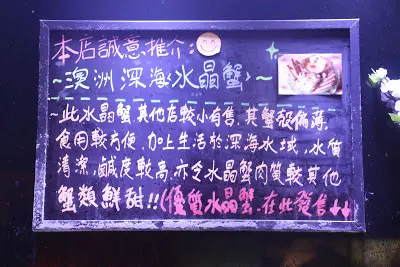 本店誠意推介:
~澳洲深海水晶蟹~
~此水晶蟹其他店較小有售,其蟹殼偏薄,
食用較方便,加上生活於深海水域,水質
清潔,鹹度較高,亦令水晶蟹肉質較其他
蟹類鮮甜!!(優質水晶蟹.在此發售↓↓